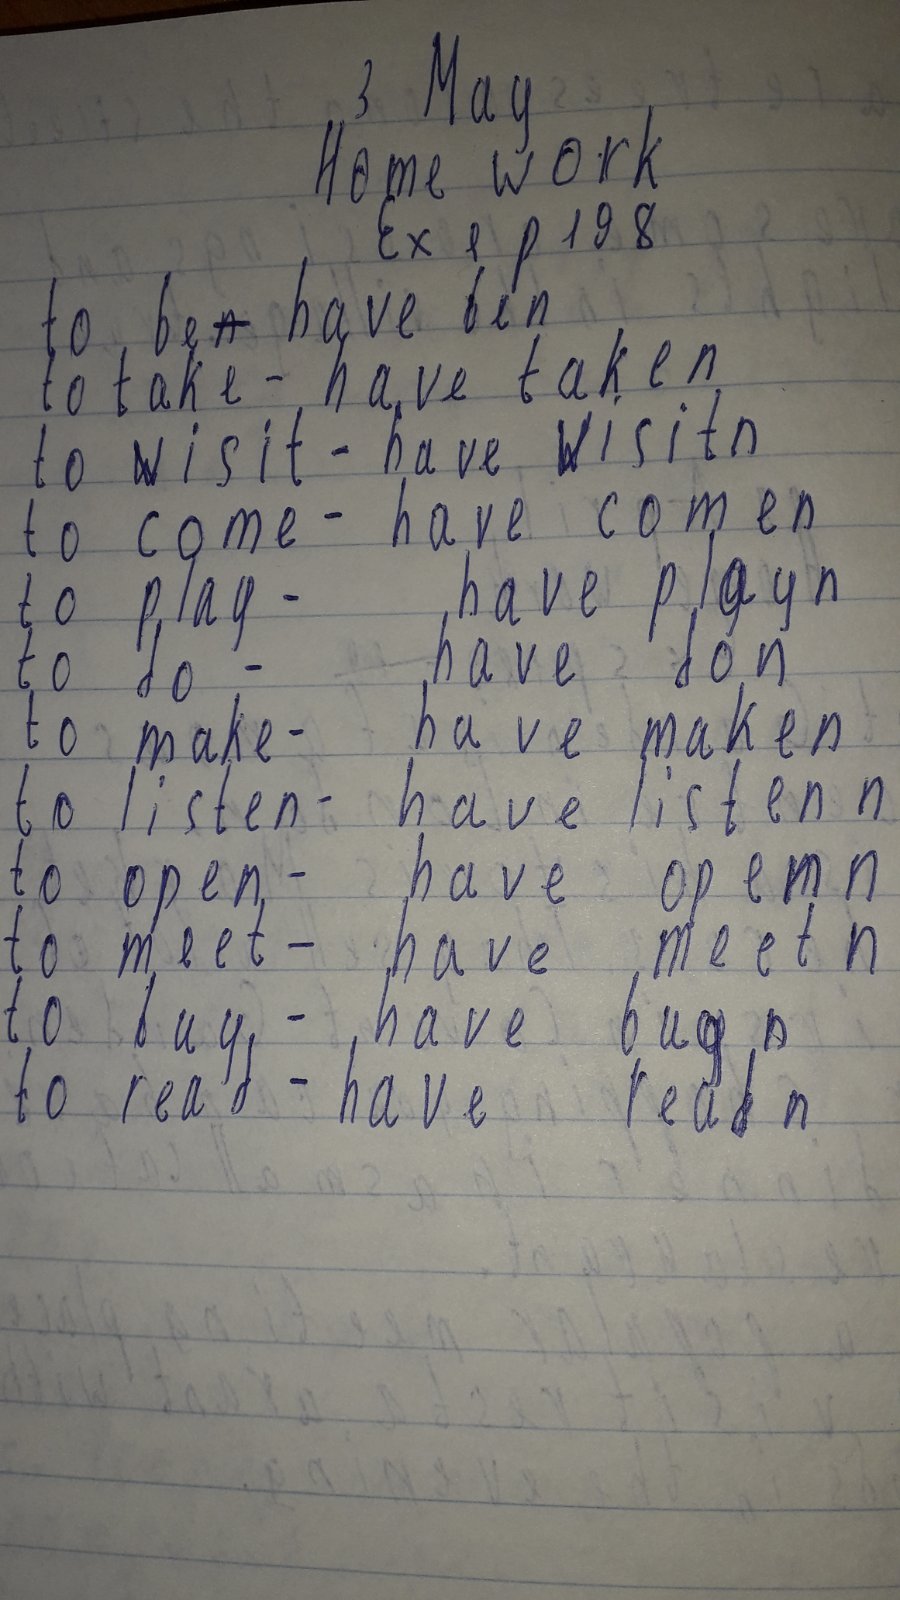 3 May
Home work
Ex 1 p 198
to be - have ben
to take - have taken
to wisit - have wisitn
to come - have comen
to play - have playn
to do - have don
to make - have maken
to listen - have listenn
to open - have openn
to meet - have meetn
to buy - have buyn
to read - have readn